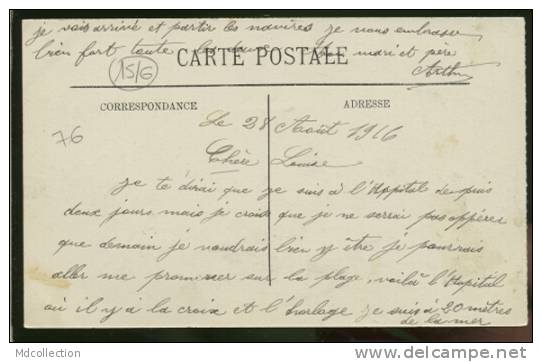 je vais arrivé et partir les navires je vous embrasse
bien fort toute les deux mari et père
Arthur
CARTE POSTALE
15/6
CORRESPONDANCE
ADRESSE
76
Le 28 Août 1916
Chère Louise
je te dirai que je suis à l'Hopital de puis
deux jours mais je crois que je ne serai pas oppérer
que demain je voudrais bien y être je pourrais
aller me promener sur la plage, voilà l'Hopital
où il y à la croix et l'horloge je suis à 20 mètres
de la mer
Mdcollection
www.delcampe.net